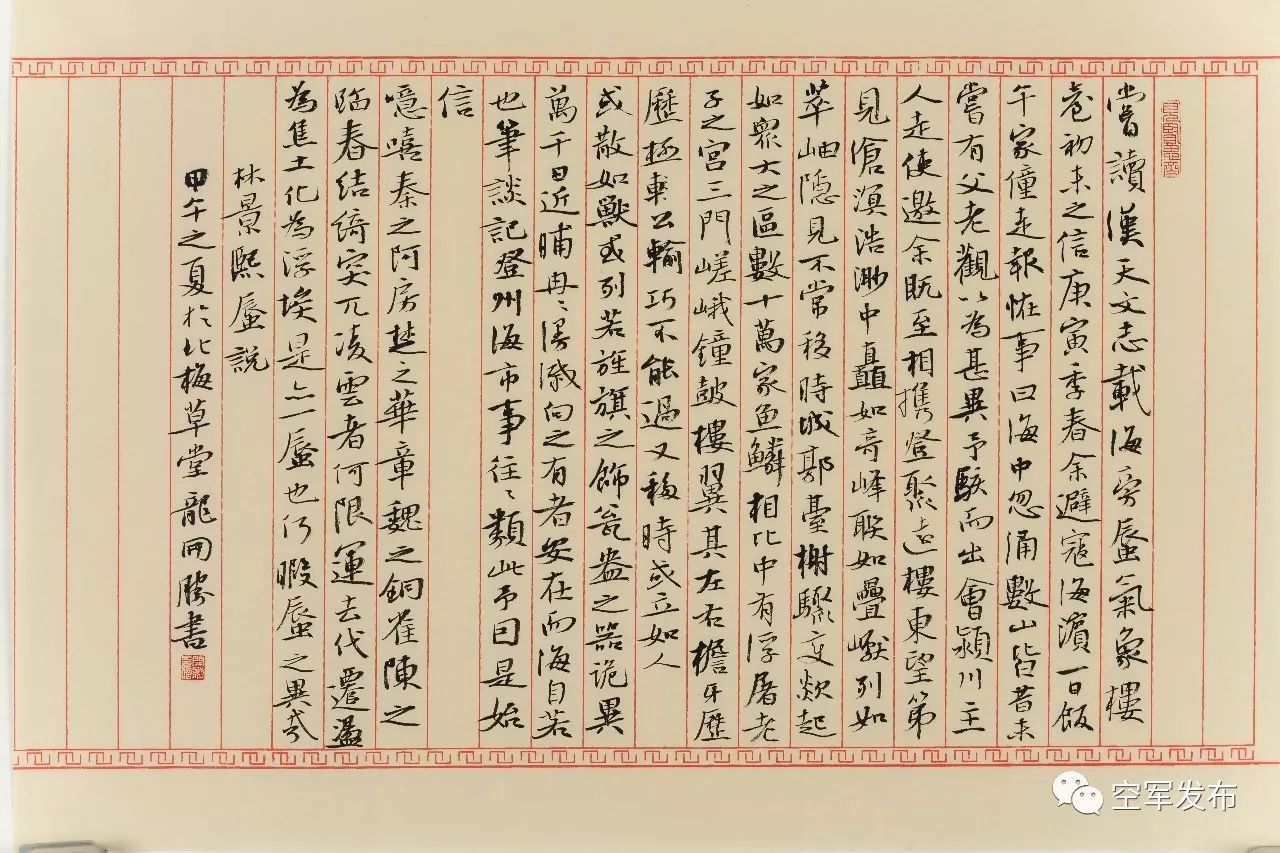 嘗讀漢天文志載海旁蜃氣象樓
初未之信庚寅季春余避寇海濱一日飯
午家僮走報怪事曰海中忽涌數山皆昔未
嘗有父老觀以為甚異予駭而出會潁川主
人走使邀余既至相攜登聚遠樓東望第
見滄溟浩渺中矗如奇峰聯如疊巘列如
萃岫隱見不常移時城郭臺榭驟變欻起
如眾大之區數十萬家魚鱗相比中有浮屠老
子之宮三門嵯峨鐘鼓樓翼其左右檐牙歷
歷極車公輸巧不能過又移時或立如人
或散如獸或列若旌旗之飾瓮盎之器詭異
萬千日近晡冉冉漫滅向之有者安在而海自若
也筆談記登州海市事往往類此予因是始
信
噫嘻秦之阿房楚之華章魏之銅雀陳之
臨春結綺突兀凌雲者何限運去代遷蕩
為焦土化為浮埃是亦一蜃也何暇蜃之異哉
林景熙蜃說
甲午之夏於北梅草堂龍開勝書
空军发布